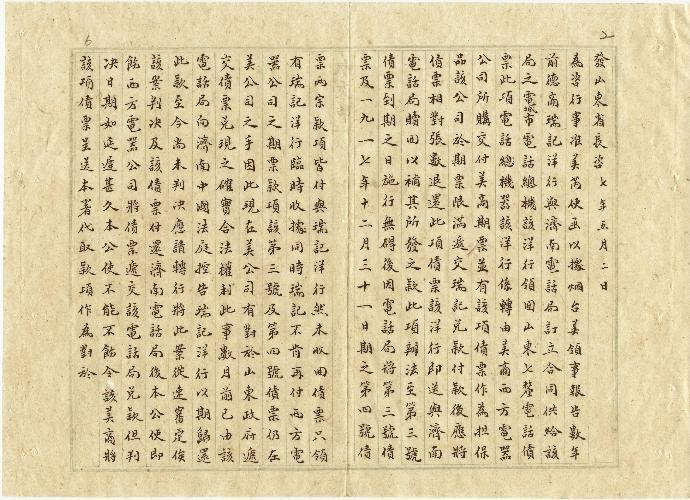 2
發山東省長咨 七年五月二日
為咨行事准美芮使函以據烟台美領事報告數年
前德商瑞記洋行與濟南電話局訂立合同供給該
局之城市電話總機該洋行領回山東七釐電話債
票此項電話總機器該洋行係轉由美商西方電器
公司所購交付美商期票並有該項債票作為担保
品該公司於期票限滿遞交瑞記兌款付款後應將
債票相對張數退還此項債票該洋行即送與濟南
電話局贖回以補其所發之款此項辦法至第三號
債票到期之日施行無碍後因電話局將第三號債
票及一九一七年十二月三十一日期之第四號債
票兩宗款項皆付與瑞記洋行然未收回債票只領
有瑞記洋行臨時收據同時瑞記不肯再付西方電
器公司之期票款項該第三號及第四號債票仍在
美公司之手因此現在美公司有對於山東政府遞
交債票兌現之確實合法權利此事數月前已由該
電話局向濟南中國法庭控告瑞記洋行以期歸還
此款至今尚未判决應請轉行將此案從速審定俟
該案判决及該債票付還濟南電話局後本公使即
飭西方電器公司將債票遞交該電話局兌款但判
决日期如延遲甚久本公使不能不飭令該美商將
該項債票呈送本署代取款項作為對於
6